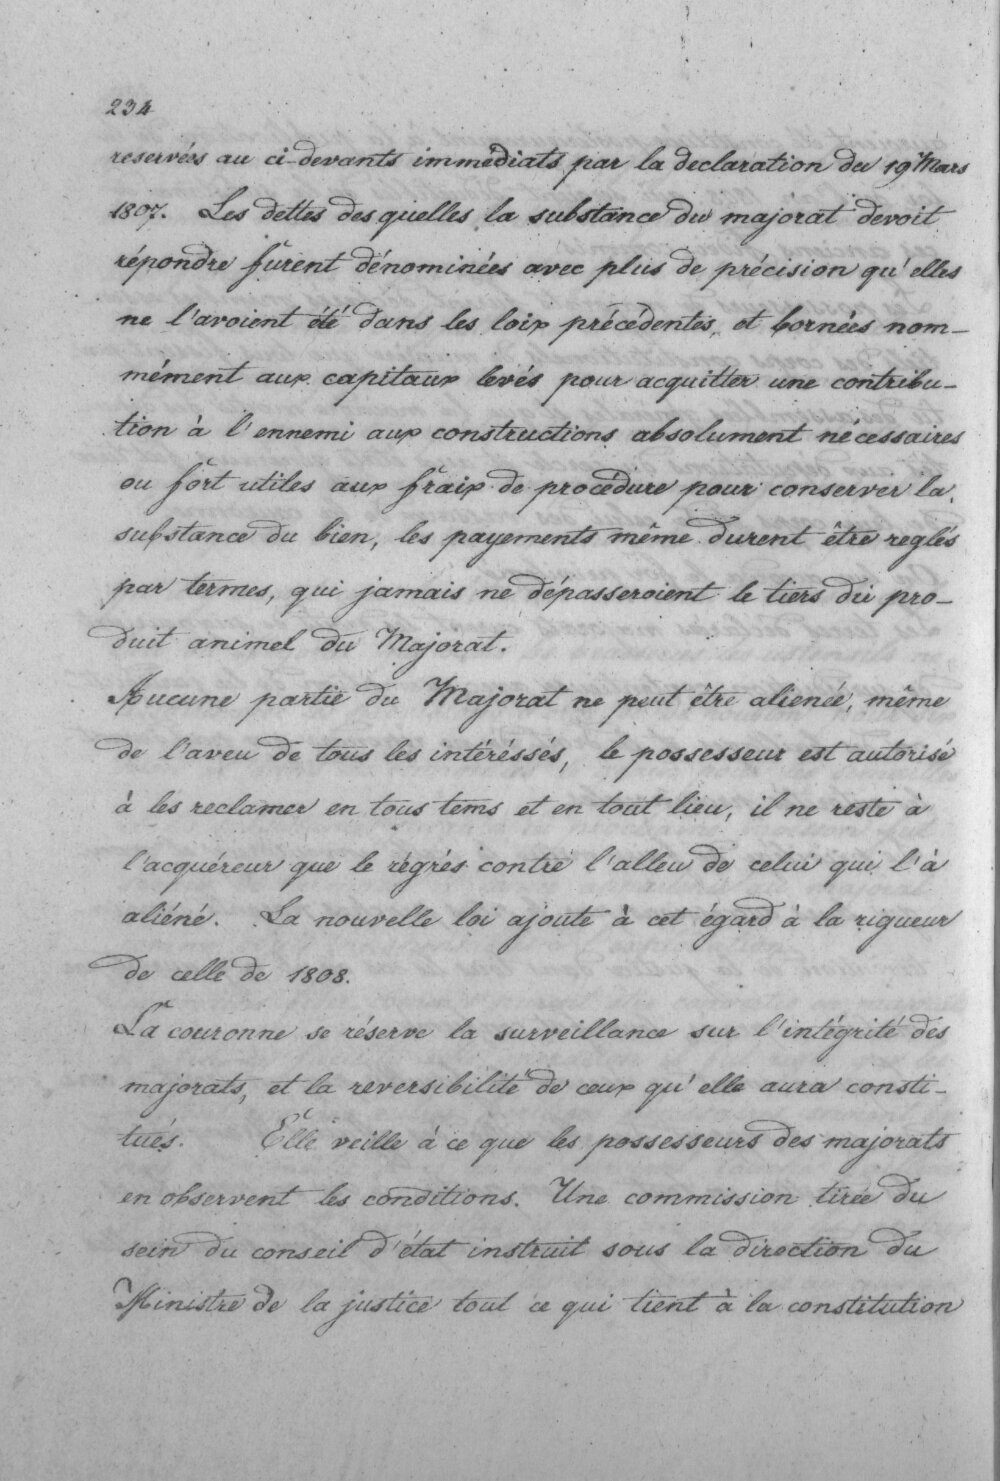 234
reservées au ci-devants immédiats par la declaration du 19 Mars
1807. Les dettes desquelles la substance du majorat devoit
répondre furent dénominées avec plus de précision qu'elles
ne l'avoient été dans les loix précédentes, et bornées nom-
mément aux capitaux levés pour acquitter une contribu-
tion à l'ennemi aux constructions absolument nécessaires
ou fort utiles aux fraix de procédure pour conserver la
substance du bien, les payements même durent être reglés
par termes, qui jamais ne dépasseroient le tiers du pro-
duit animel du Majorat.
Aucune partie du Majorat ne peut être alienée, même
de l'aveu de tous les intéréssés, le possesseur est autorisé
à les reclamer en tous tems et en tout lieu, il ne reste à
l'acquéreur que le régrés contre l'alleu de celui qui l'à
aliéné. La nouvelle loi ajoute à cet égard à la rigueur
de celle de 1808.
La couronne se réserve la surveillance sur l'intégrité des
majorats, et la reversibilité de ceux qu'elle aura consti-
tués. Elle veille à ce que les possesseurs des majorats
en observent les conditions. Une commission tirée du
sein du conseil d'état instruit sous la direction du
Ministre de la justice tout ce qui tient à la constitution